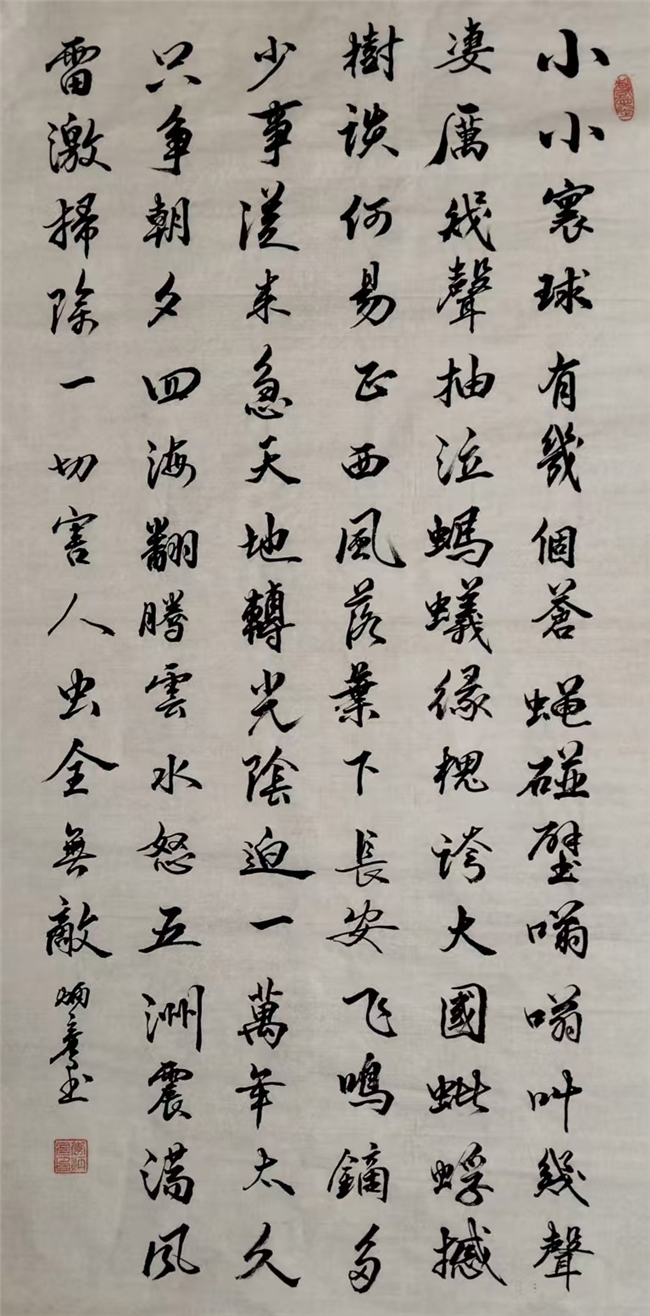 小小寰球有幾個蒼蝇碰壁嗡嗡叫幾聲
凄厲幾聲抽泣螞蟻緣槐誇大國蚍蜉撼
樹談何易正西風落葉下長安飞鳴鏑多
少事從来急天地轉光陰迫一萬年太久
只争朝夕四海翻騰雲水怒五洲震蕩風
雷激掃除一切害人虫全無敵